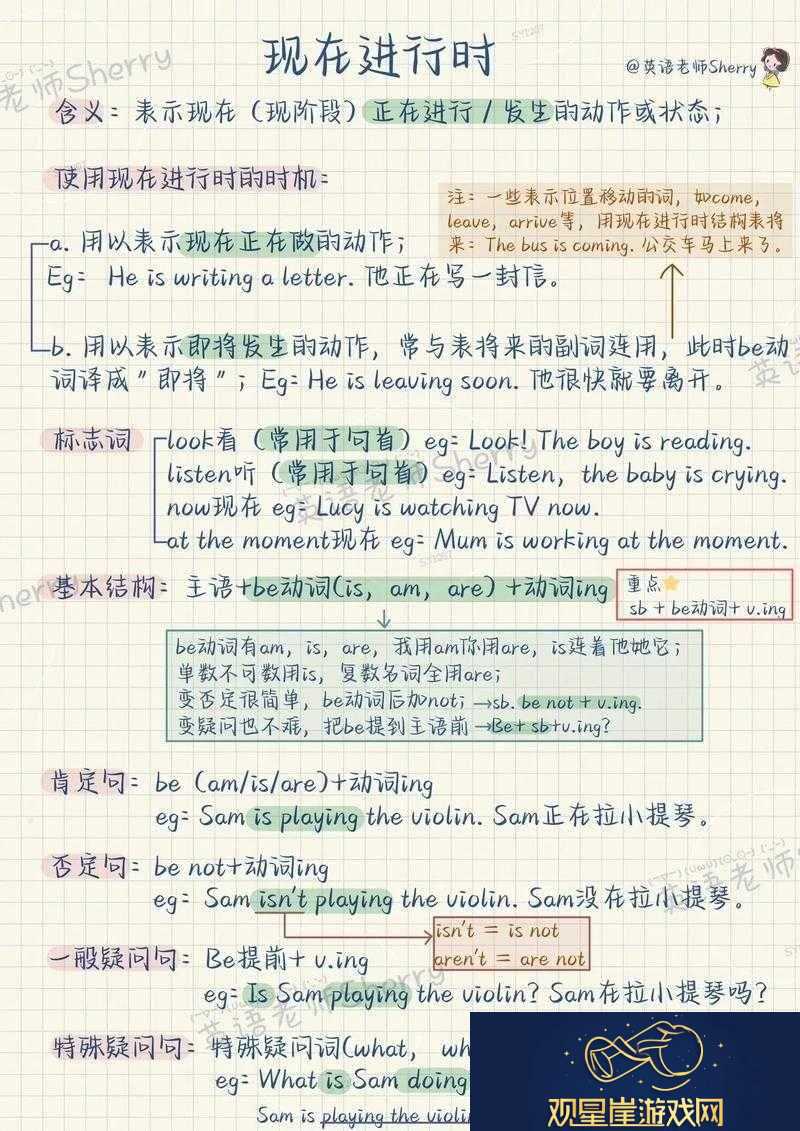 现在进行时
@英语老师Sherry
含义：表示现在（现阶段）正在进行/发生的动作或状态；
使用现在进行时的时机：
注：一些表示位置移动的词，如come，
leave，arrive等，用现在进行时结构表将
来：The bus is coming. 公交车马上来了。
a. 用以表示现在正在做的动作；
Eg： He is writing a letter. 他正在写一封信。
b. 用以表示即将发生的动作，常与表将来的副词连用，此时be动
词译成"即将"；Eg：He is leaving soon. 他很快就要离开。
标志词
look看（常用于句首）eg：Look! The boy is reading.
listen听（常用于句首）eg：Listen，the baby is crying.
now现在 eg：Lucy is watching TV now.
at the moment现在 eg：Mum is working at the moment.
基本结构：主语+be动词(is，am，are）+动词ing
重点
sb + be动词+ v.ing
be动词有am，is，are，我用am你用are，is连着他她它；
单数不可数用is，复数名词全用are；
变否定很简单，be动词后加not；→sb. be not + v.ing.
变疑问也不难，把be提到主语前→Be+ sb+v.ing?
肯定句：be（am/is/are)+动词ing
eg：Sam is playing the violin. Sam正在拉小提琴。
否定句：be not+动词ing
eg：Sam isn't playing the violin. Sam没在拉小提琴。
isn't = is not
aren't = are not
一般疑问句：Be提前+ v.ing
eg：Is Sam playing the violin? Sam在拉小提琴吗？
特殊疑问句：特殊疑问词(what， wh
eg：What is Sam doing
Sam is playing the violin
观星崖游戏网
老师Sherry
英语老师Sherry
英语老师Sherry
英语老师